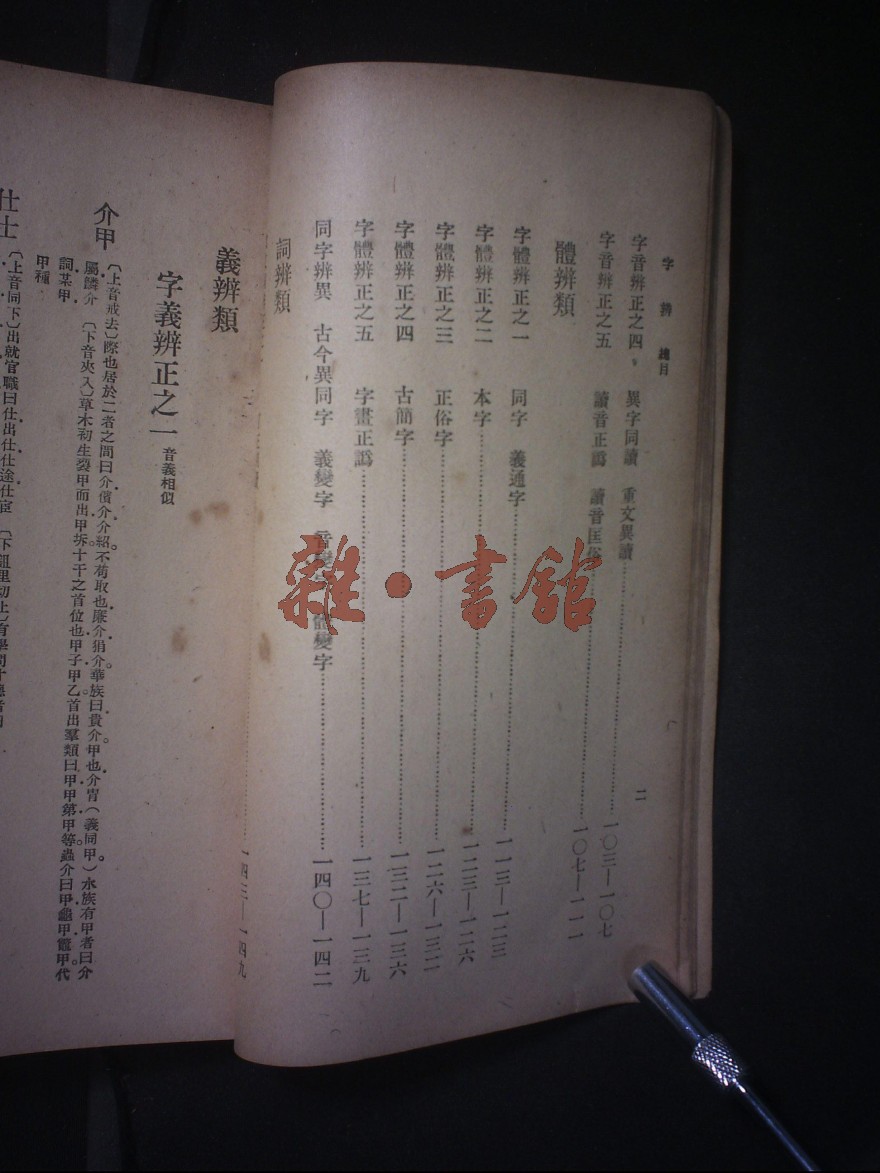 字辨 總目
二
字音辨正之四 異字同讀 重文異讀 一〇三—一〇七
字音辨正之五 讀音正譌 讀音匡俗 一〇七—一一一
體辨類
字體辨正之一 同字 義通字 一一三—一二三
字體辨正之二 本字 一二三—一二六
字體辨正之三 正俗字 一二六—一三二
字體辨正之四 古簡字 一三二—一三六
字體辨正之五 字畫正譌 一三七—一三九
同字辨異 古今異同字 義變字 音變字 體變字 一四〇—一四二
詞辨類
一四三—一四九
義辨類
字義辨正之一 音義相似
介甲
〔上音戒去〕際也居於二者之間曰介儐介介紹不苟取也廉介狷介華族曰貴介甲也介冑(義同甲)水族有甲者曰介
屬鱗介 〔下音夾入〕草木初生裂甲而出甲坼十干之首位也甲子甲乙首出羣類曰甲甲第甲等蟲介曰甲龜甲鼈甲代
詞某甲
甲種
仕士
〔上音同下〕出就官職曰仕出仕仕途仕宦
雜·書館